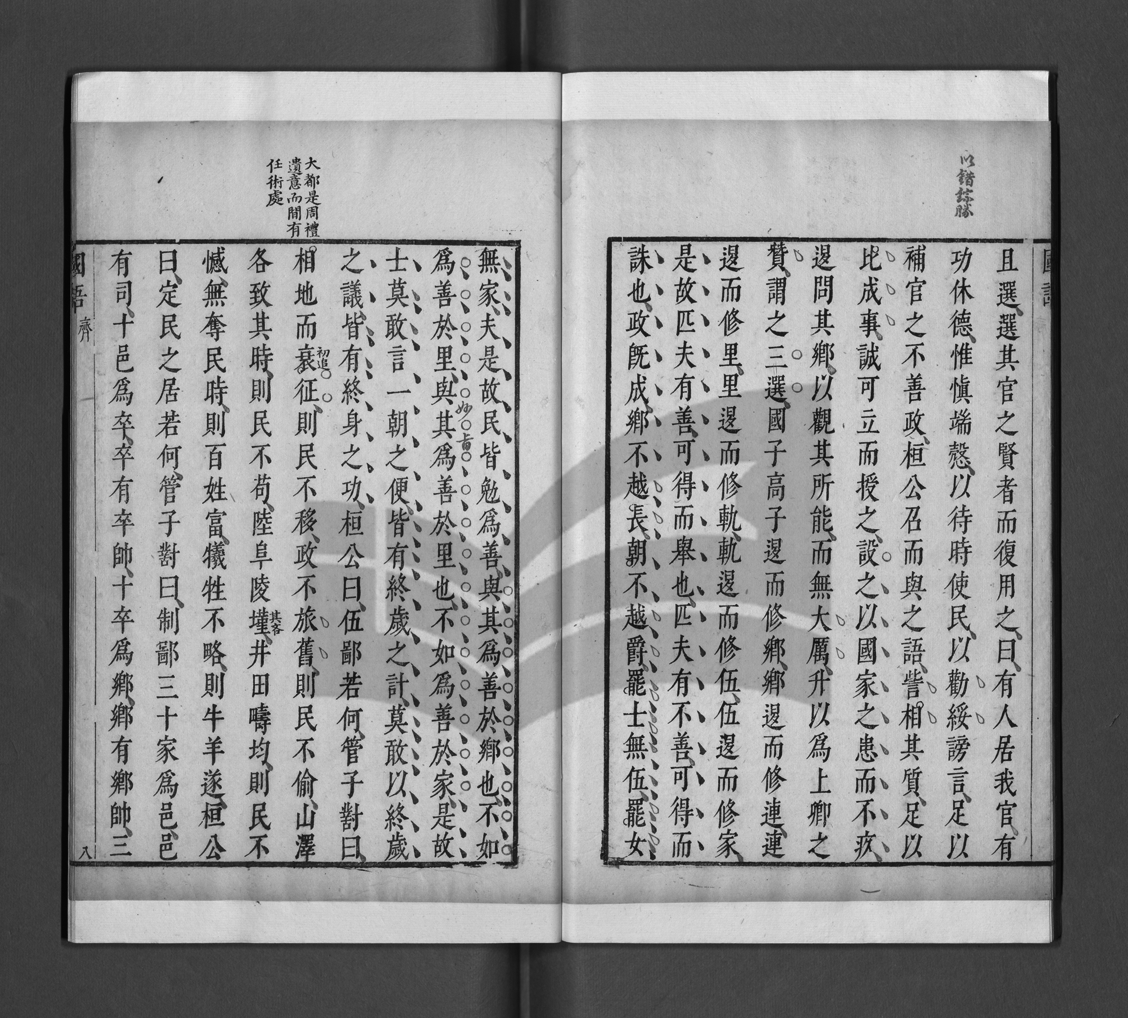 國語
以錯綜勝
且選選其官之賢者而復用之曰有人居我官有
功休德惟愼端慤以待時使民以勸綏謗言足以
補官之不善政桓公召而與之語訾相其質足以
比成事誠可立而授之設之以國家之患而不疚
退問其鄉以觀其所能而無大厲升以爲上卿之
贊謂之三選國子高子退而修鄉鄉退而修連連
退而修里里退而修軌軌退而修伍伍退而修家
是故匹夫有善可得而舉也匹夫有不善可得而
誅也政旣成鄉不越長朝不越爵罷士無伍罷女
無家夫是故民皆勉爲善與其爲善於鄉也不如
爲善於里與其爲善於里也不如爲善於家是故
妙旨
士莫敢言一朝之便皆有終歲之計莫敢以終歲
之議皆有終身之功桓公曰伍鄙若何管子對曰
大都是周禮
遺意而間有
任術處
相地而衰征則民不移政不旅舊則民不偷山澤
初追
各致其時則民不苟陸阜陵墐井田疇均則民不
其吝
憾無奪民時則百姓富犧牲不略則牛羊遂桓公
曰定民之居若何管子對曰制鄙三十家爲邑邑
有司十邑爲卒卒有卒帥十卒爲鄉鄉有鄉帥三
國語 齊 八